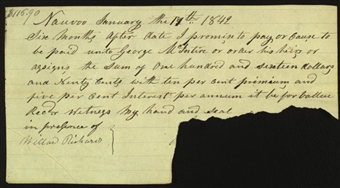 $116.90
Nauvoo January the 19th 1842
Six months after date I promise to pay or cause to
be paid unto George McIntire or order his heirs or
assigns the sum of one hundred and sixteen dollars
and Ninty Cents with ten per cent primium and
five per cent Interest per annum it be for value
Recd witness my hand and seal
in presence of
Willard Richards